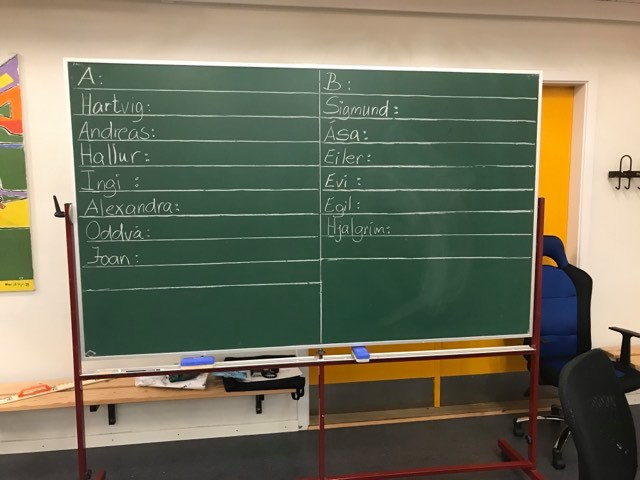 A:
Hartvig:
Andreas:
Hallur:
Ingi :
Alexandra:
Oddvá:
Jóan:
B :
Sigmund :
Ása:
Eiler:
Evi :
Egil :
Hjalgrím: